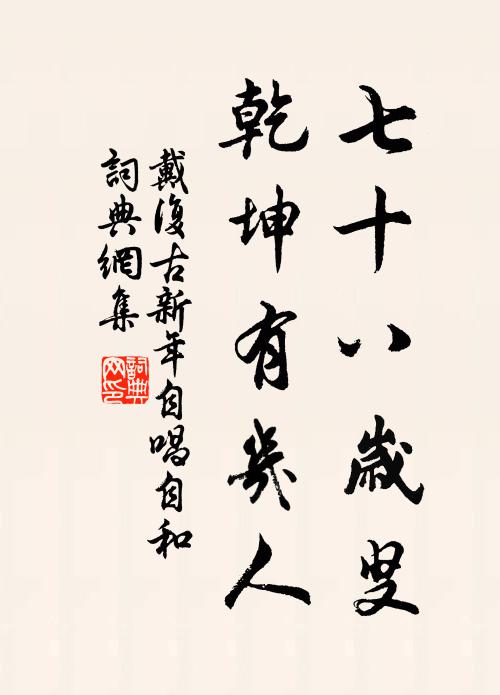 七十八歲叟
乾坤有幾人
戴復古新年自唱自和
詞典網集
詞典网印